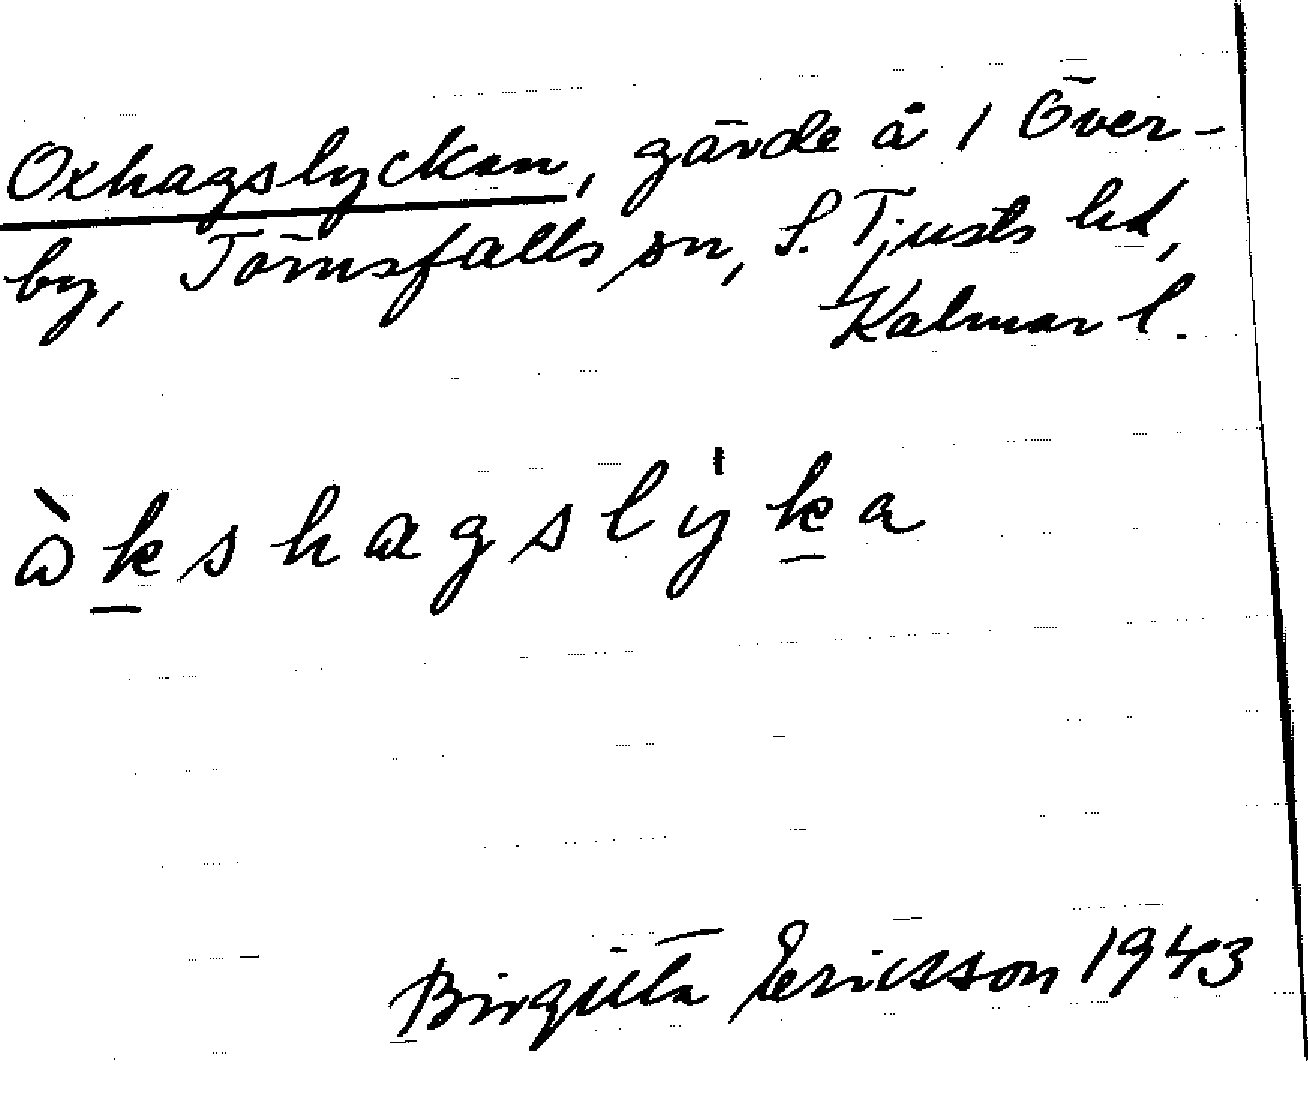 Oxhagslyckan, gärde å 1 Över-
by, Törnsfalls sn, S. Tjusts hd,
Kalmar l.
ὼkshagslyka
Birgitta Ericsson 1943